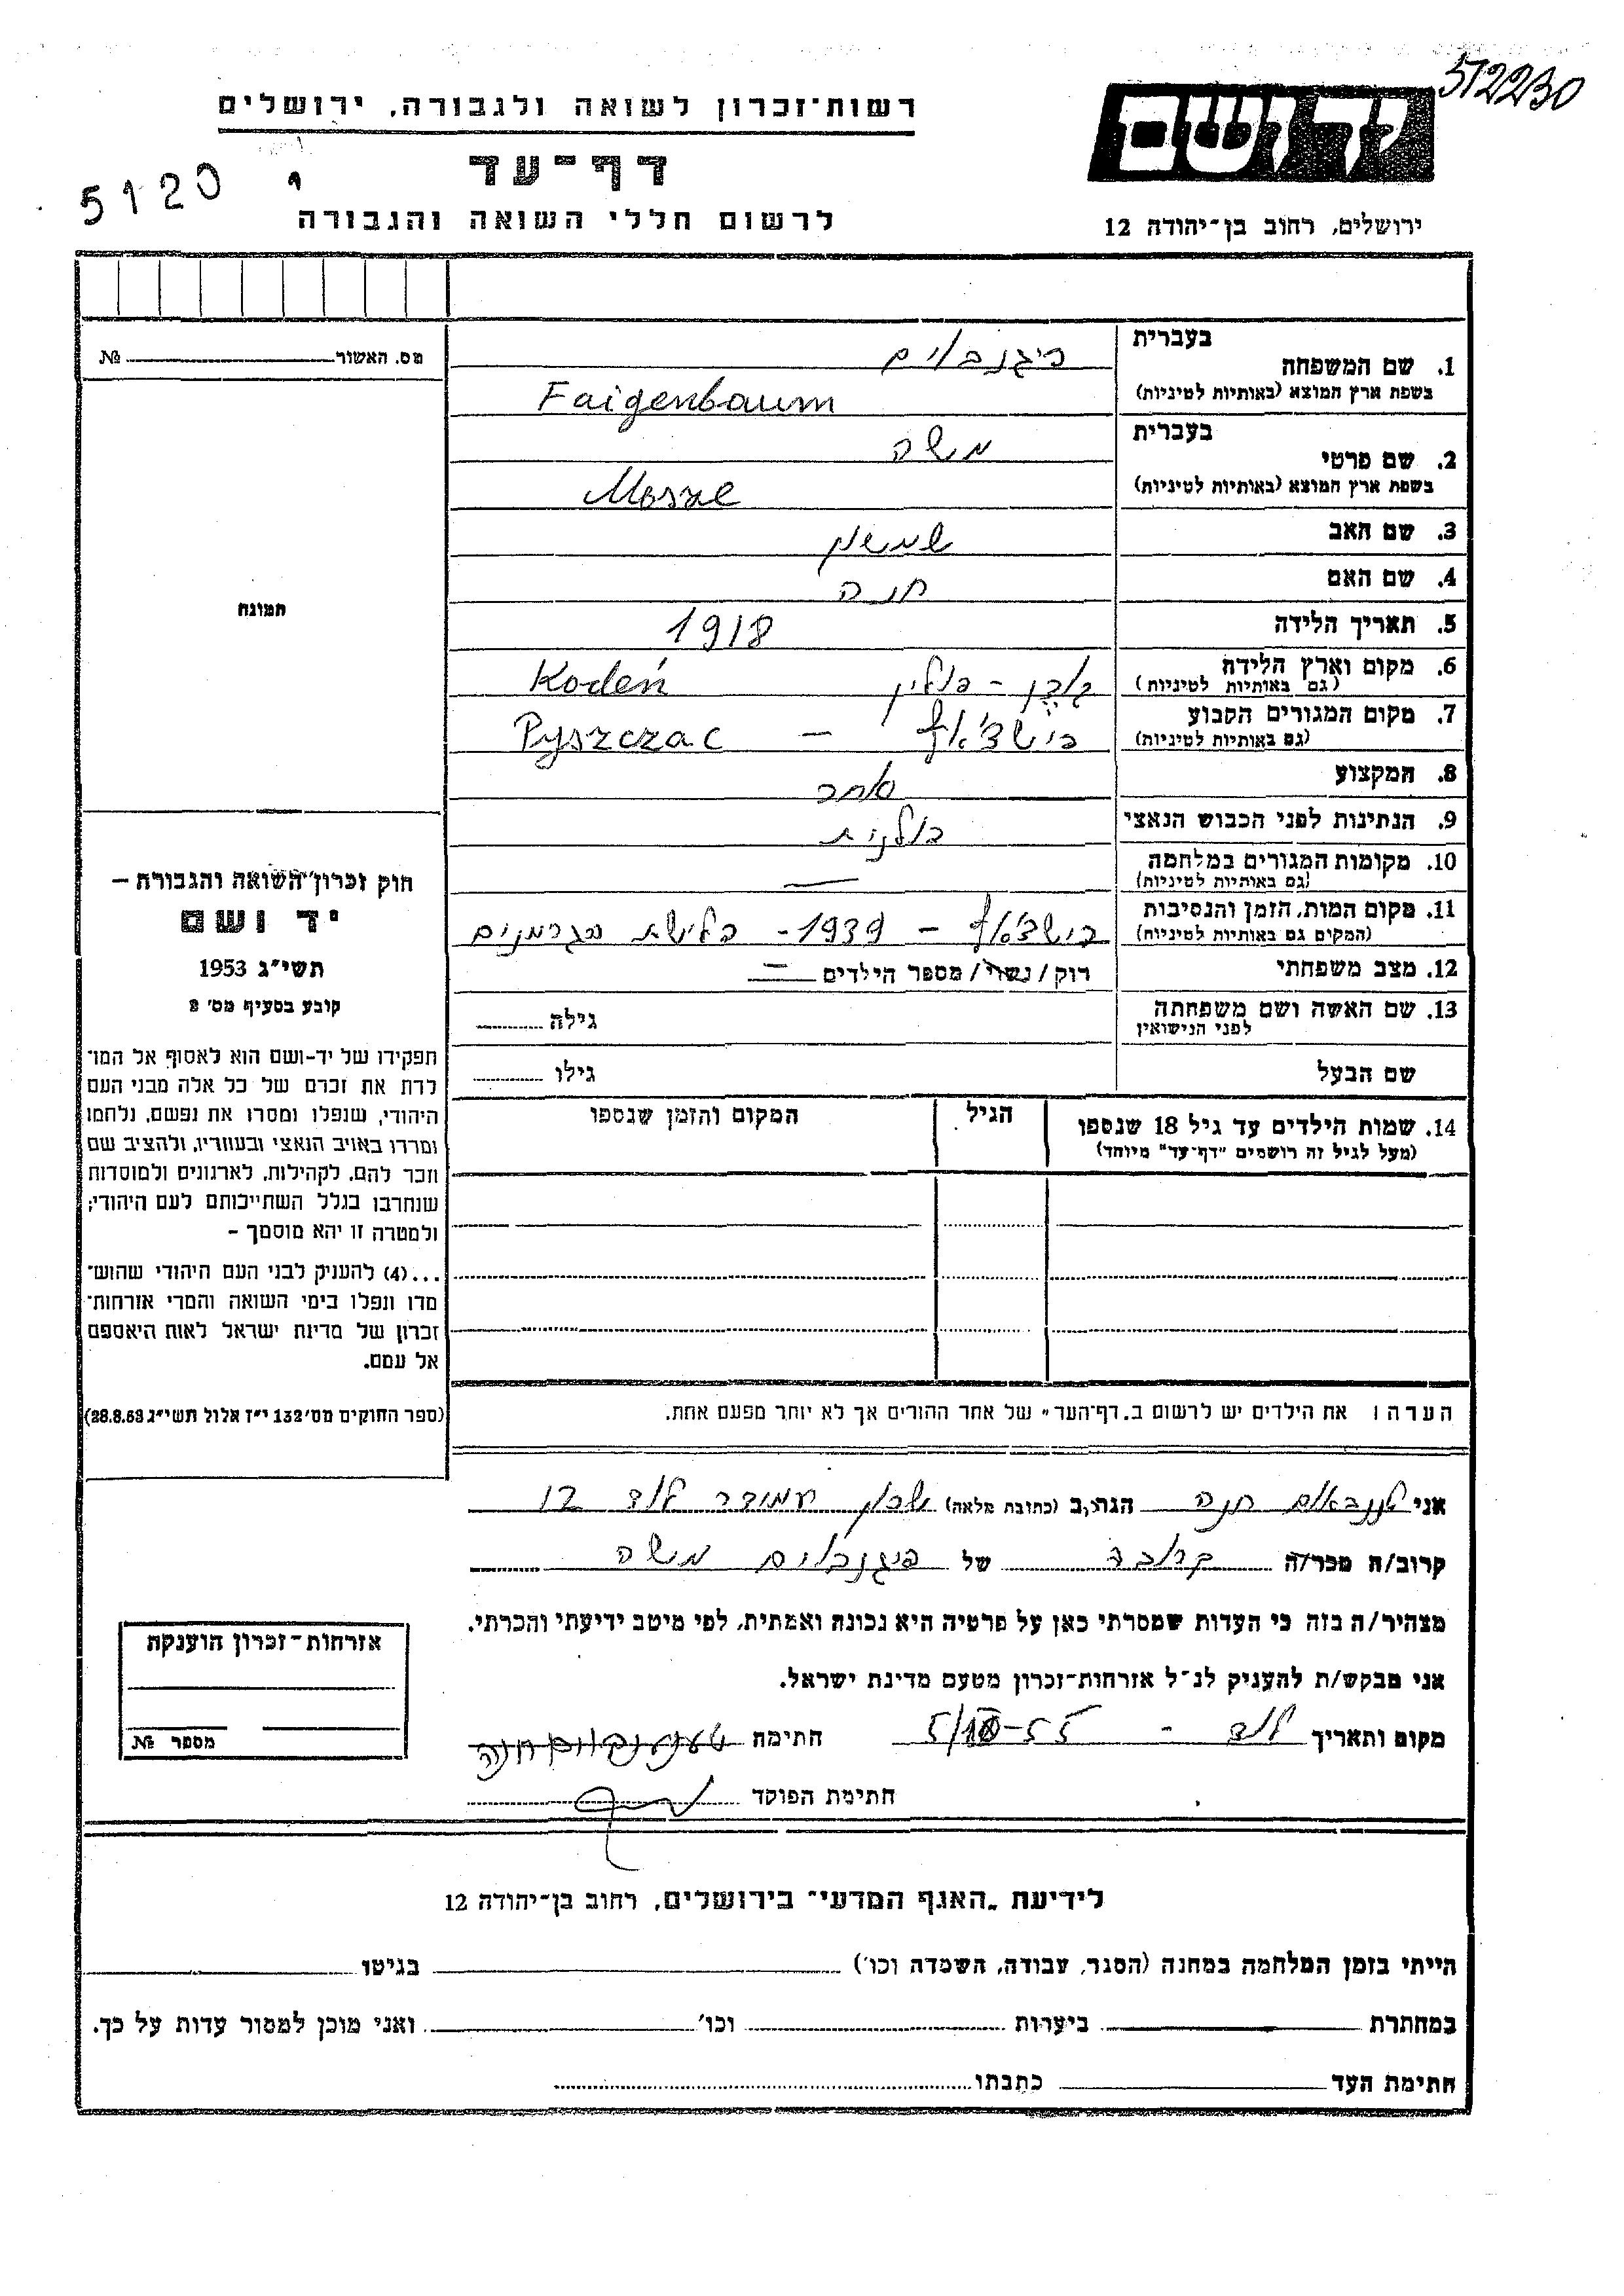 512230
רשות־זכרון לשואה ולגבורה, ירושלים
יד ושם
דף־עד
5120
לרשום חללי השואה והגבורה
ירושלים, רחוב בן־יהודה 12
מס. האשור № 
בעברית
1. שם המשפחה פיגנבוים
בשפת ארץ המוצא (באותיות לטיניות) Faigenbaum
בעברית
2. שם פרטי משה
בשפת ארץ המוצא (באותיות לטיניות) Mosze
3. שם האב שמשון
4. שם האם חנה
5. תאריך הלידה 1918
6. מקום וארץ הלידה קודן – פולין Kodeń
(גם באותיות לטיניות)
7. מקום המגורים הקבוע פישצ'אץ – Pyszczac
(גם באותיות לטיניות)
8. המקצוע סוחר
9. הנתינות לפני הכבוש הנאצי פולנית
10. מקומות המגורים במלחמה —
(גם באותיות לטיניות)
11. מקום המות, הזמן והנסיבות פישצ'אץ – 1939 - פלישת הגרמנים
(המקום גם באותיות לטיניות)
12. מצב משפחתי רוק/נשוי/מספר הילדים —
13. שם האשה ושם משפחתה גילה
לפני הנישואין
שם הבעל גילו
14. שמות הילדים עד גיל 18 שנספו הגיל המקום והזמן שנספו
(מעל לגיל זה רושמים "דף־עד" מיוחד)
תמונה
חוק זכרון השואה והגבורה –
יד ושם
תשי"ג 1953
קובע בסעיף מס' 2
תפקידו של יד-ושם הוא לאסוף אל המו־
לדת את זכרם של כל אלה מבני העם
היהודי, שנפלו ומסרו את נפשם, נלחמו
ומרדו באויב הנאצי ובעוזריו, ולהציב שם
וזכר להם, לקהילות, לארגונים ולמוסדות
שנחרבו בגלל השתייכותם לעם היהודי;
ולמטרה זו יהא מוסמך –
...(4) להעניק לבני העם היהודי שהוש־
מדו ונפלו בימי השואה והמרי אזרחות־
זכרון של מדינת ישראל לאות היאספם
אל עמם.
(ספר החוקים מס' 132 י"ז אלול תשי"ג 28.8.53)
הערה: את הילדים יש לרשום ב„דף־העד" של אחד ההורים אך לא יותר מפעם אחת.
אני טננבאום חנה הגר/ב (כתובת מלאה) שכון עמידר לוד 12
קרוב/ה מכר/ה קרובה של פיגנבוים משה
מצהיר/ה בזה כי העדות שמסרתי כאן על פרטיה היא נכונה ואמתית, לפי מיטב ידיעתי והכרתי.
אני מבקש/ת להעניק לנ"ל אזרחות־זכרון מטעם מדינת ישראל.
מקום ותאריך לוד - חתימה
חתימת הפוקד
אזרחות־זכרון הוענקה
מספר №
לידיעת „האגף המדעי" בירושלים, רחוב בן־יהודה 12
הייתי בזמן המלחמה במחנה (הסגר, עבודה, השמדה וכו') בגיטו
במחתרת ביערות וכו' ואני מוכן למסור עדות על כך.
חתימת העד כתבתו